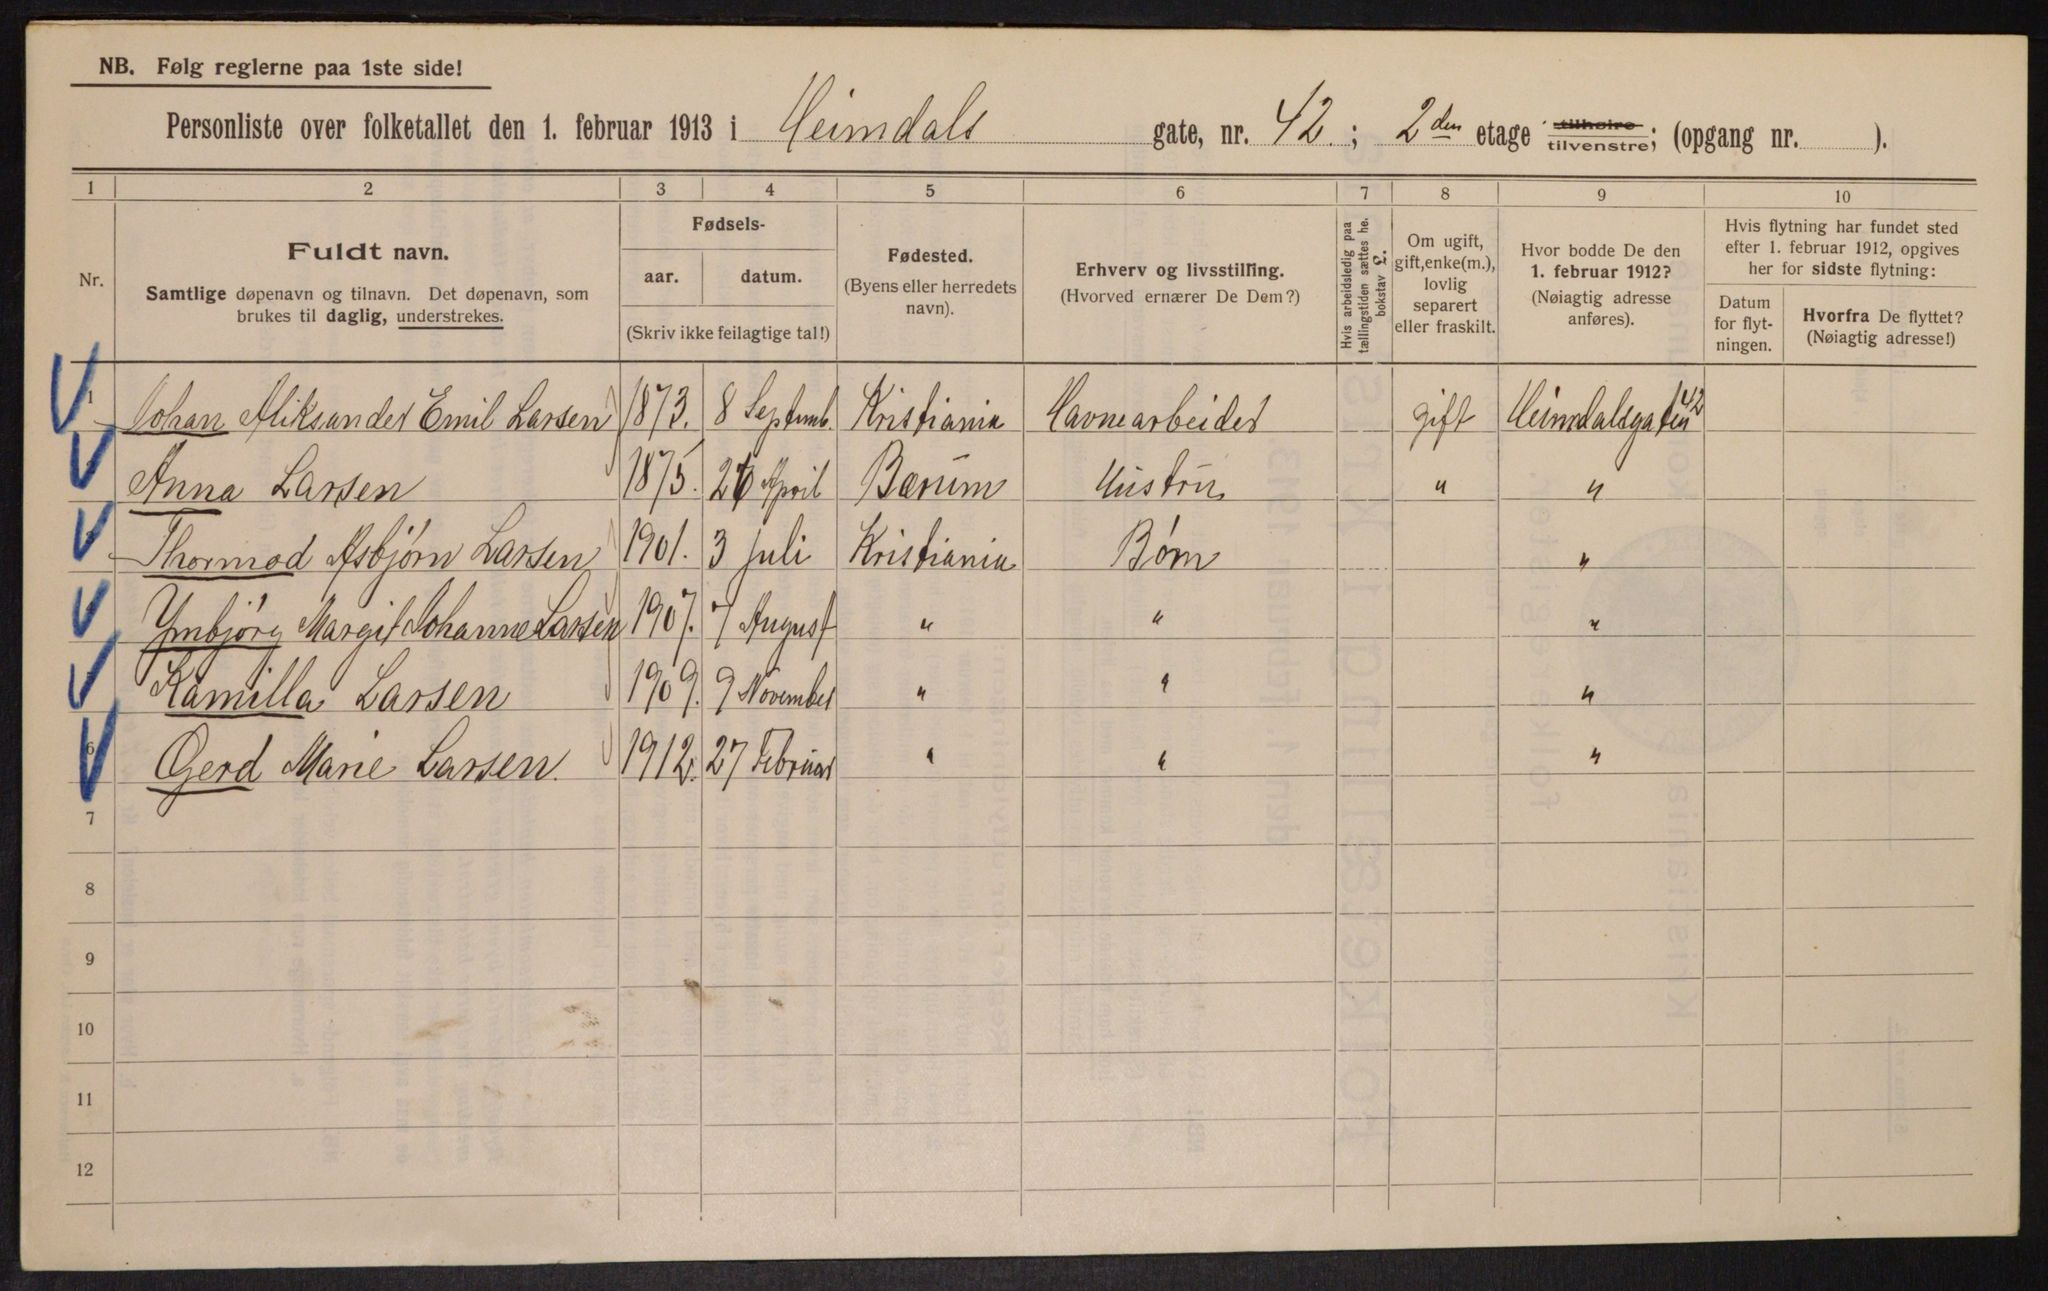 NB. Følg reglerne paa 1ste side!
Personliste over folketallet den 1. februar 1913 i Heimdals gate, nr. 42. ; 2den etage tilhøire tilvenstre; (opgang nr. ).
1 2 3 4 5 6 7 8 9 10
Nr.
Fuldt navn.
Samtlige døpenavn og tilnavn. Det døpenavn, som
brukes til daglig, understrekes.
Fødsels-
aar. datum.
(Skriv ikke feilagtige tal!)
Fødested.
(Byens eller herredets
navn).
Erhverv og livsstilling.
(Hvorved ernærer De Dem?)
Hvis arbeidsledig paa
tællingstiden sættes her
bokstav L.
Om ugift,
gift, enke(m.),
lovlig
separert
eller fraskilt.
Hvor bodde De den
1. februar 1912?
(Nøiagtig adresse
anføres).
Hvis flytning har fundet sted
efter 1. februar 1912, opgives
her for sidste flytning:
Datum
for flyt-
ningen.
Hvorfra De flyttet?
(Nøiagtig adresse!)
1 Johan Aliksander Emil Larsen 1873. 8 Septemb. Kristiania Havnearbeider gift Heimdalsgaten 42
Anna Larsen 1875. April Bærum Hustru " "
Thormod Asbjørn Larsen 1901. 3 juli Kristiania Børn "
Ymbjørg Margit Johanne Larsen 1907. 7 August " " "
Kamilla Larsen 1909. 9 November " " "
6 Gerd Marie Larsen. 1912. 27 Februar " " "
7
8
9
10
11
12